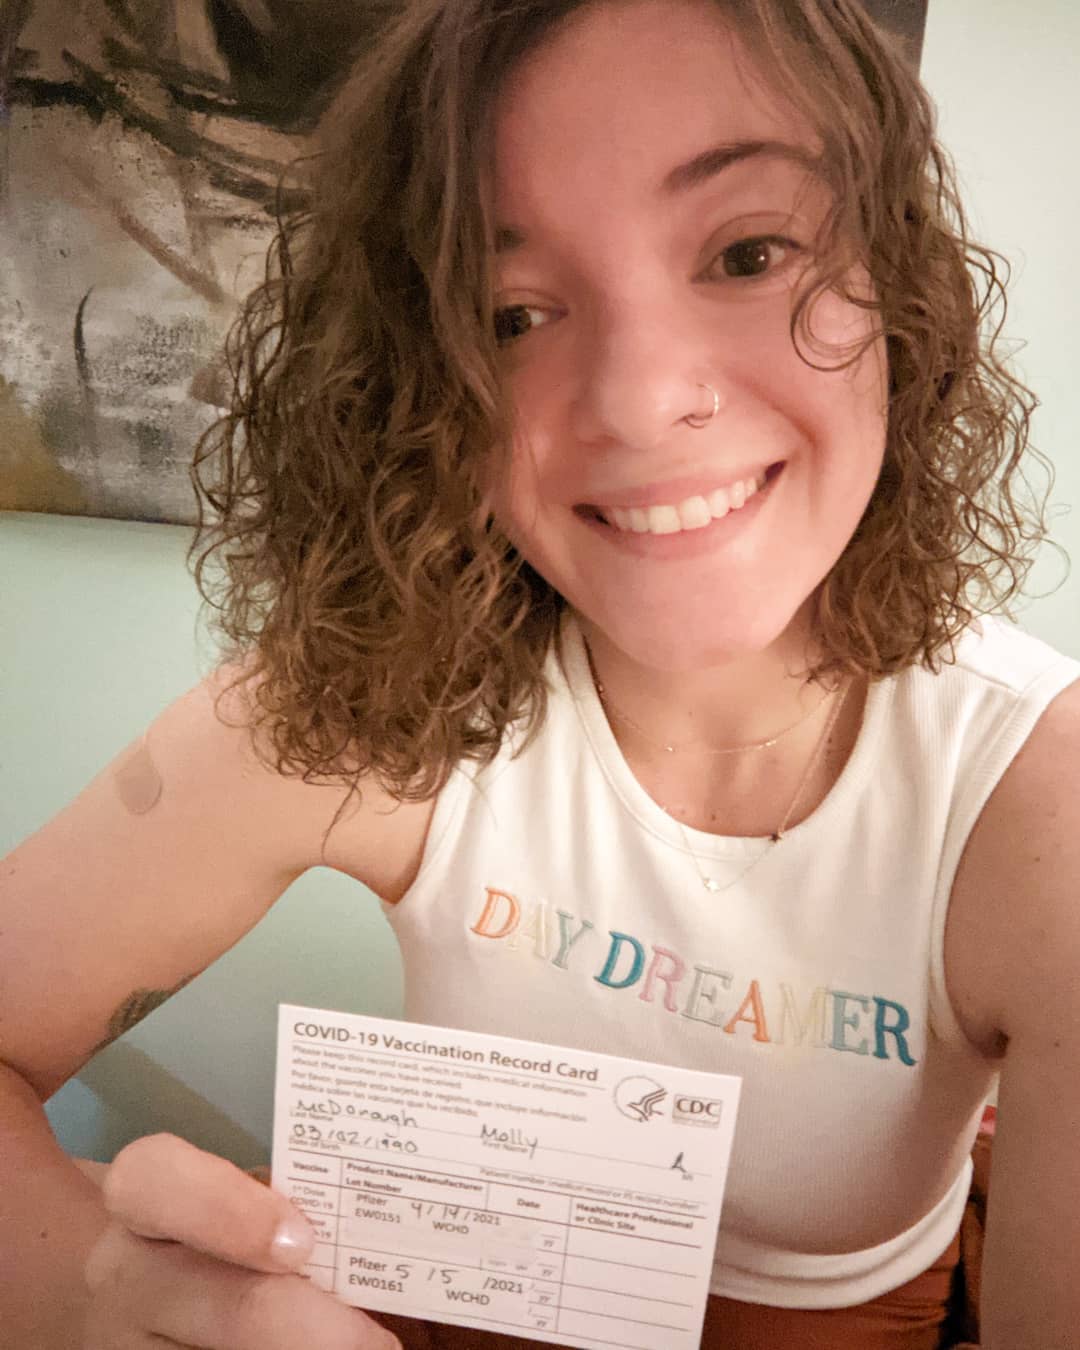 DAY DREAMER
COVID-19 Vaccination Record Card
Please keep this record card, which includes medical information
about the vaccines you have received.
Por favor, guarde esta tarjeta de registro, que incluye información
médica sobre las vacunas que ha recibido.
CDC
McDonough Molly A
Last Name First Name MI
03/02/1990
Date of birth Patient number (medical record or IIS record number)
Vaccine Product Name/Manufacturer Date Healthcare Professional
Lot Number or Clinic Site
1st Dose Pfizer 4/14/2021
COVID-19 EW0151 WCHD
yy
yy
Pfizer 5/5/2021
EW0161 WCHD
yy
yy